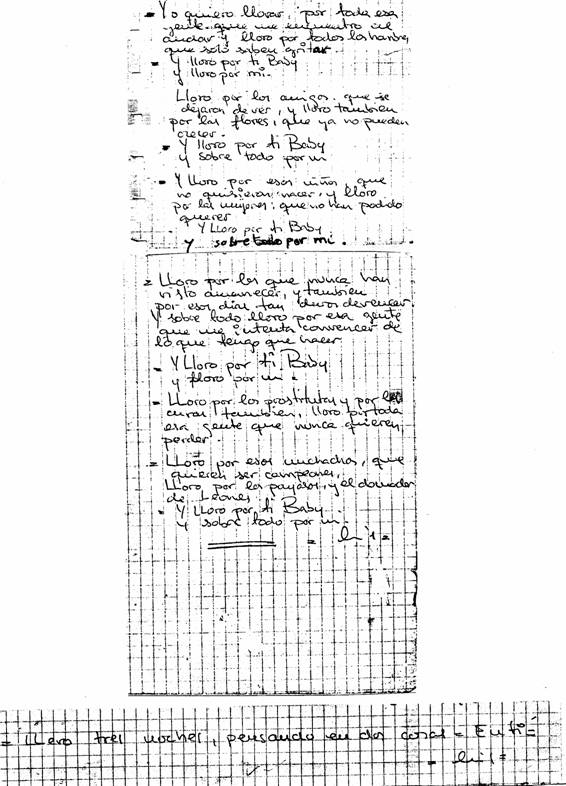 - Yo quiero llorar, por toda esa
gente que me encuentro al
andar y lloro por todos los hombres
que solo saben gritar.
- Y lloro por ti Baby
y lloro por mi.
Lloro por los amigos que se
dejaron de ver, y lloro tambien
por las flores, que ya no pueden
crecer.
- Y lloro por ti Baby
y sobre todo por mi
- Y lloro por esos niños, que
no quisieron nacer, y lloro
por las mujeres, que no han podido
querer
Y lloro por ti Baby
y sobre todo por mi.
= Lloro por los que nunca han
visto amanecer, y tambien
por esos dias tan duros de vencer.
Y sobre todo lloro por esa gente
que me intenta convencer de
lo que tengo que hacer
- Y Lloro por ti Baby
y lloro por mi.
= Lloro por las prostitutas y por los
curas tambien, lloro por toda
esa gente que nunca quieren
perder.
= Lloro por esos muchachos, que
quieren ser campeones,
Lloro por los payasos, y el domador
de Leones.
- Y Lloro por ti Baby
y sobre todo por mi.
= Llevo tres noches, pensando en dos cosas = En ti =